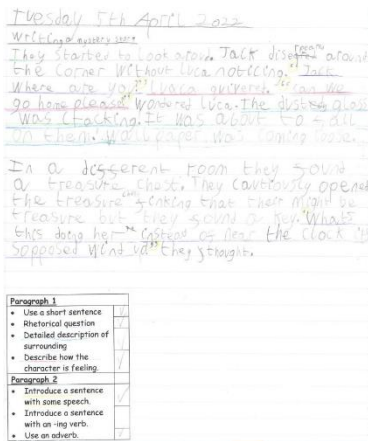 Tuesday 5th April 2022
Writing a mystery story
They started to look around. Jack disepeard around
the corner without Luca noticing. "Jack
where are you" Luaca quivered. "can we
go home please" wondered Luca. The dusty glass
was cracking. It was about to fall
on them. Wallpaper was coming loose.
In a different room they found
a treasure chest. They cautiously opened
the treasure finking that their might be
treasure but they found a key. "Whats
this doing her instead of near the clock it
sopposed wind up" they thought.
Paragraph 1
• Use a short sentence
• Rhetorical question
• Detailed description of
surrounding
• Describe how the
character is feeling.
Paragraph 2
• Introduce a sentence
with some speech.
• Introduce a sentence
with an -ing verb.
• Use an adverb.